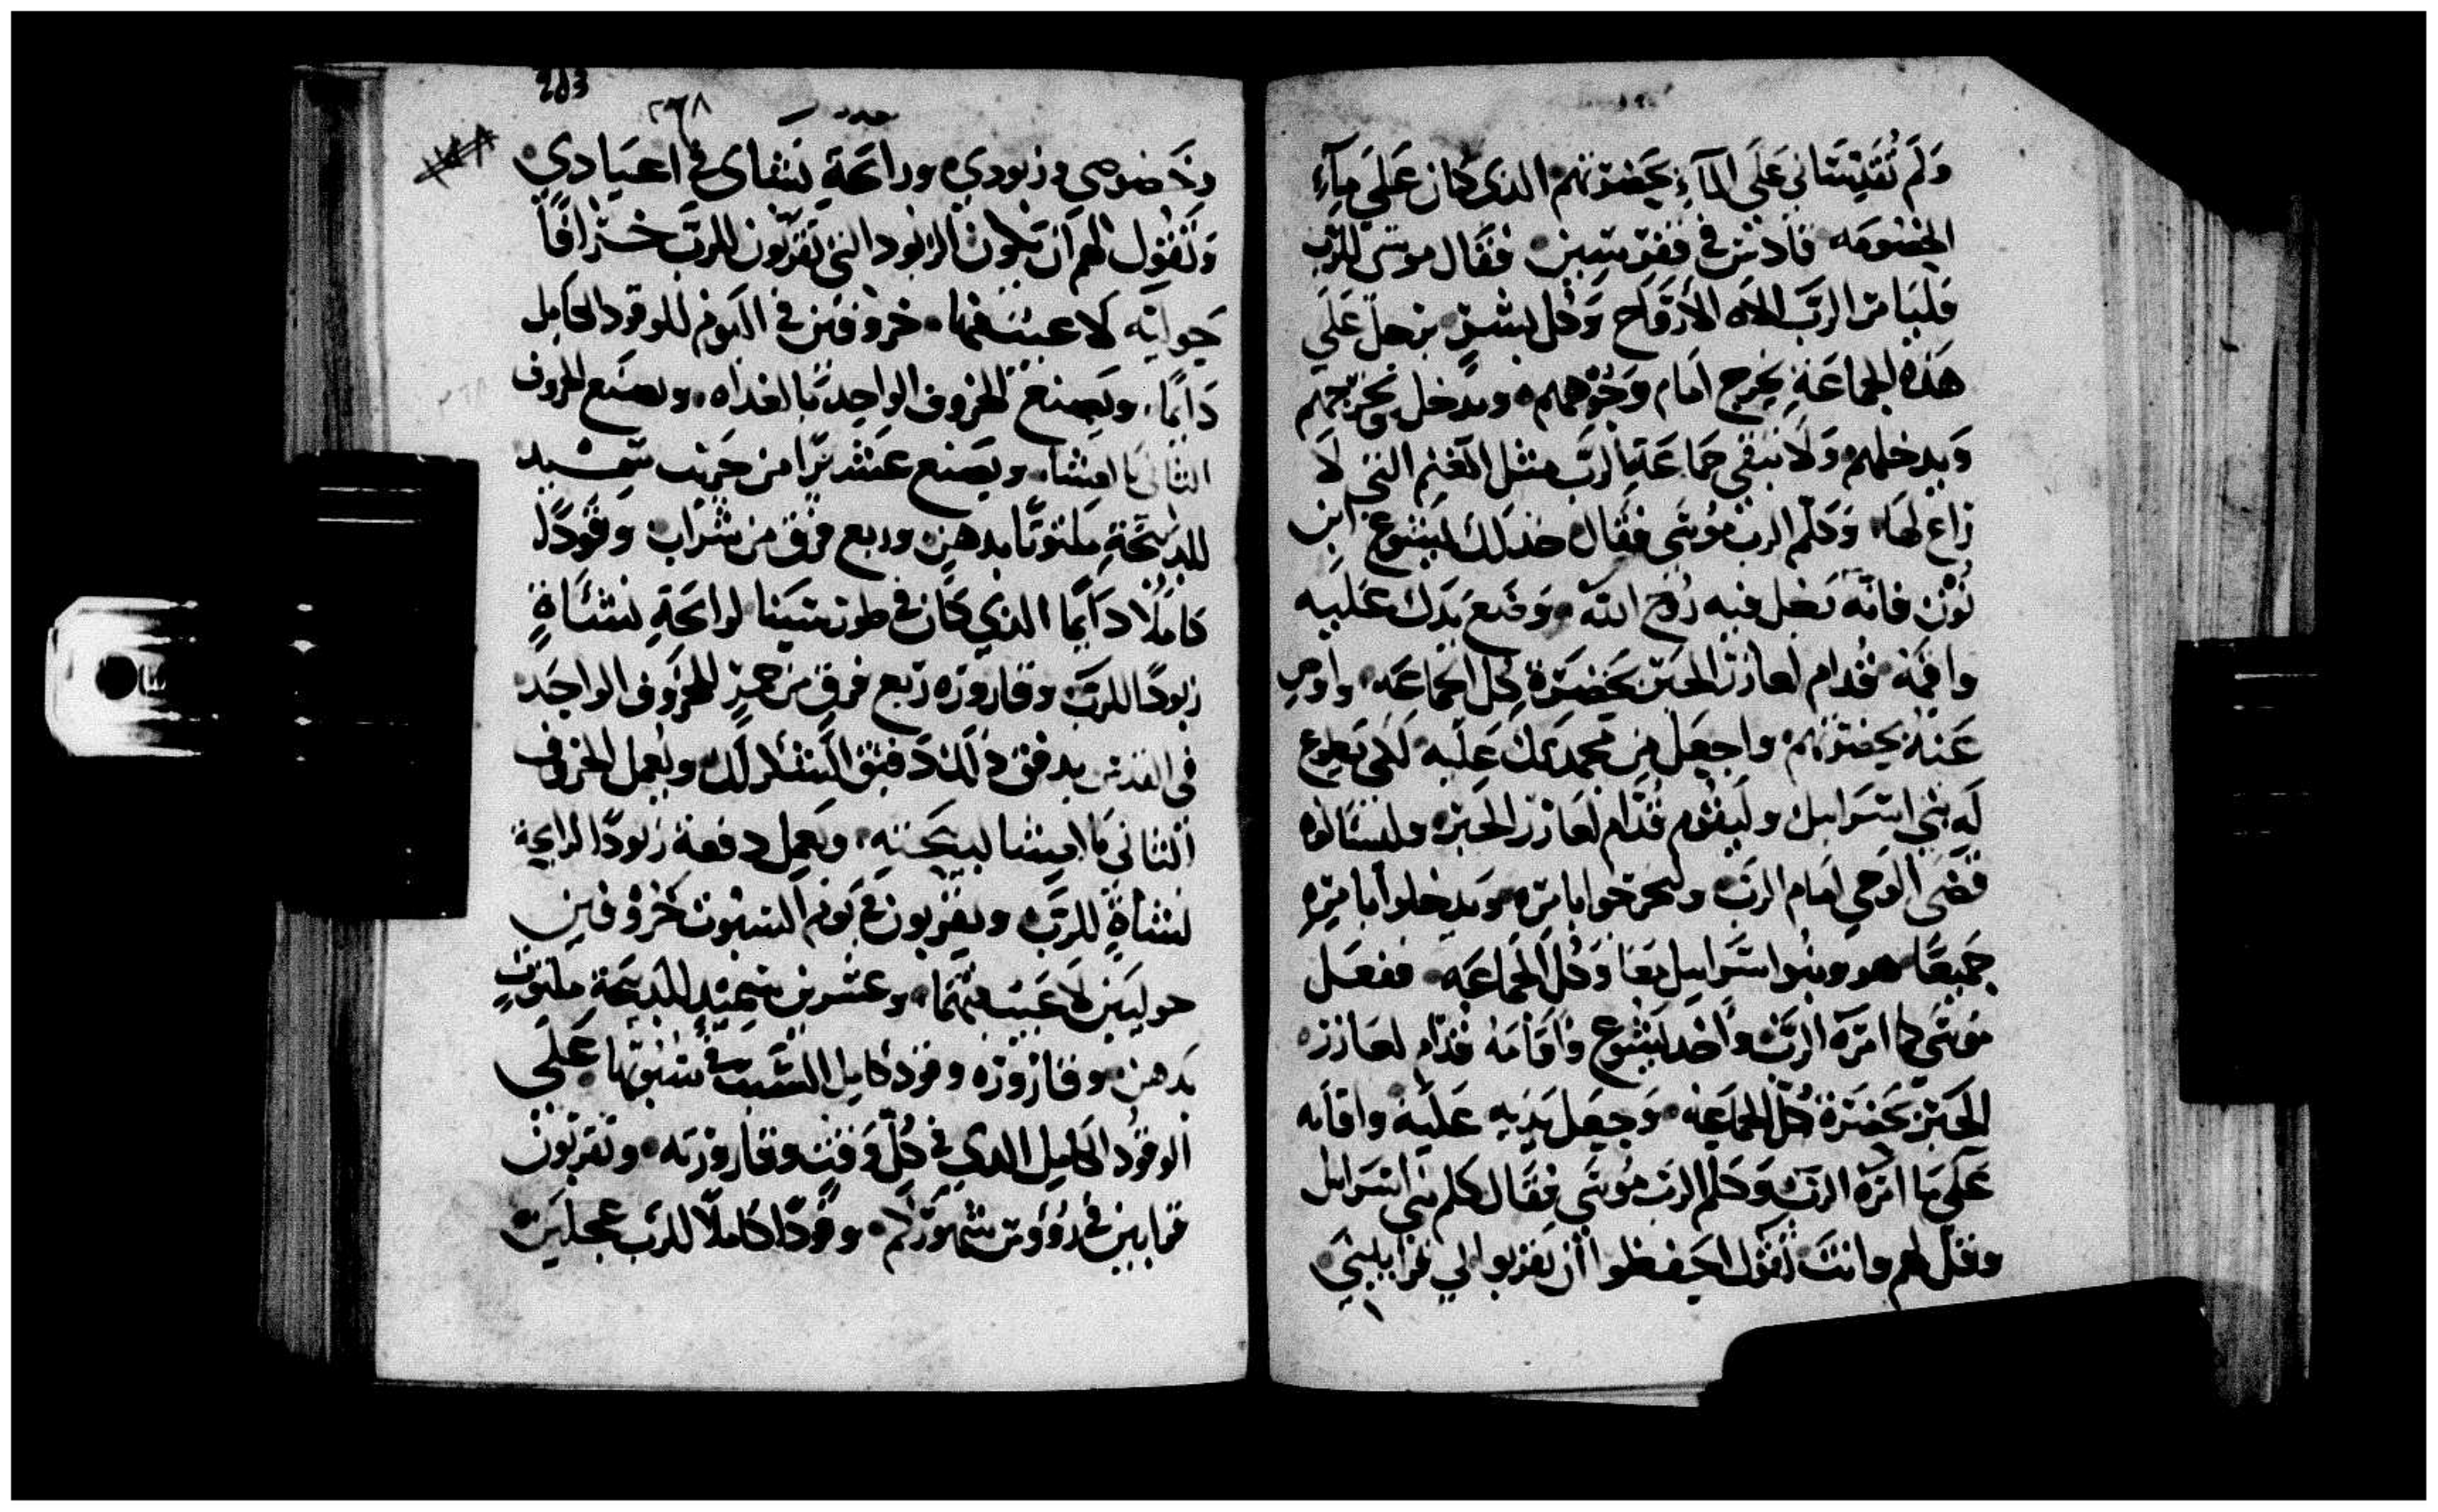 وَلَم تُقَدِّسَّاني عَلَى المآءِ بحَضرَتهم الذى كان عَلَي مآءِ
الخصُومَه قادس في قفر سين فقال موسى للرب
فليَامر الرَبّ الاه الأرواح وَكل بشرٍ برجل عَلَي
هَذِه الجماعَةِ يخرج امَام وَجُوههم ويدخل ويخرجهم
وَيدخلهم وَلَا تبقي جمَاعَة الرب مثل الغنم التي لا
رَاعٍ لهَا وَكلم الرب مُوسَى فقال خذ لك ليشوع ابن
نُون فانّه رَجل فيه رُوح الله وَضَع يَدك عَلَيه
واقمه قُدام لعازر الحَبر بحَضرَة كل الجماعَه واوص
عَنهُ بحضرتهم واجعَل مِن مجدك عَلَيه لكى يَطيع
لَهِ بَنِي اسرَايل وليَقوم قدّام لعَازر الحَبر وليسَالوه
قضَى الوَحي امَام الرَب وليخرجوا بامره وَيدخلوا بامره
جَميعًا هو وبنُوا اسرَايل معًا وَكل الجماعَه ففعَل
مُوسَى كما امَره الرَبّ وأخد ليشوع وَأقَامَهُ قدّام لعَازر
الحَبر بحَضرَة كل الجماعَه وَجعَل يَدَيه عَلَيه واقامه
عَلَى مَا امَره الرَبّ وَكلم الرب مُوسَى فقال كلم بَني اسرَايل
وقل لهم وانتَ تقول احفظوا أن تقربوا لي قرابيني
203
٢٦٨
عدد
وخَصُوصى وزبودي ورائحَة نشاى في اعيَادي
وَتقُول لهم ان تكون الزبود التي تقربُون للرَبّ خرافًا
حَوليّه لا عيب فيها خروفين في اليوم للوقود الكامل
دَايمًا ويَصنع الخروف الواحد بالغداه ويصنع الخروف
الثاني بالعشا ويَصنع عشرًا من جَريب سميد
للدبيحَةِ ملتوتًا بدهن وربع فرق من شرَاب وقودًا
كاملًا دَايمًا الذي كان في طور سَينا لرايحَةِ نشَاةٍ
زبودًا للرَبّ وقاروزه رُبع فرق من خمرٍ للخَروف الواحَد
في القدس يدفق دَلكَ دَفيق السَّكر للرب ويَعمل الخروف
الثاني بالعشا ويَعمل دفعة زبودًا لرايحة
نشاةٍ للرَبّ ويقربون في يوم السبُوت خروفين
حوليَين لا عَيب فيهمَا وعشرين سَميد للدبيحَة ملتوت
بَدهن وقاروزه وقود كامل السَبت في سُبُوتها عَلَى
الوقود الكامل الدى في كلّ وَقت وقاروزته وتقربُون
قرابين في رُؤوس شهورَكم وقودًا كاملًا للرَب عجلين